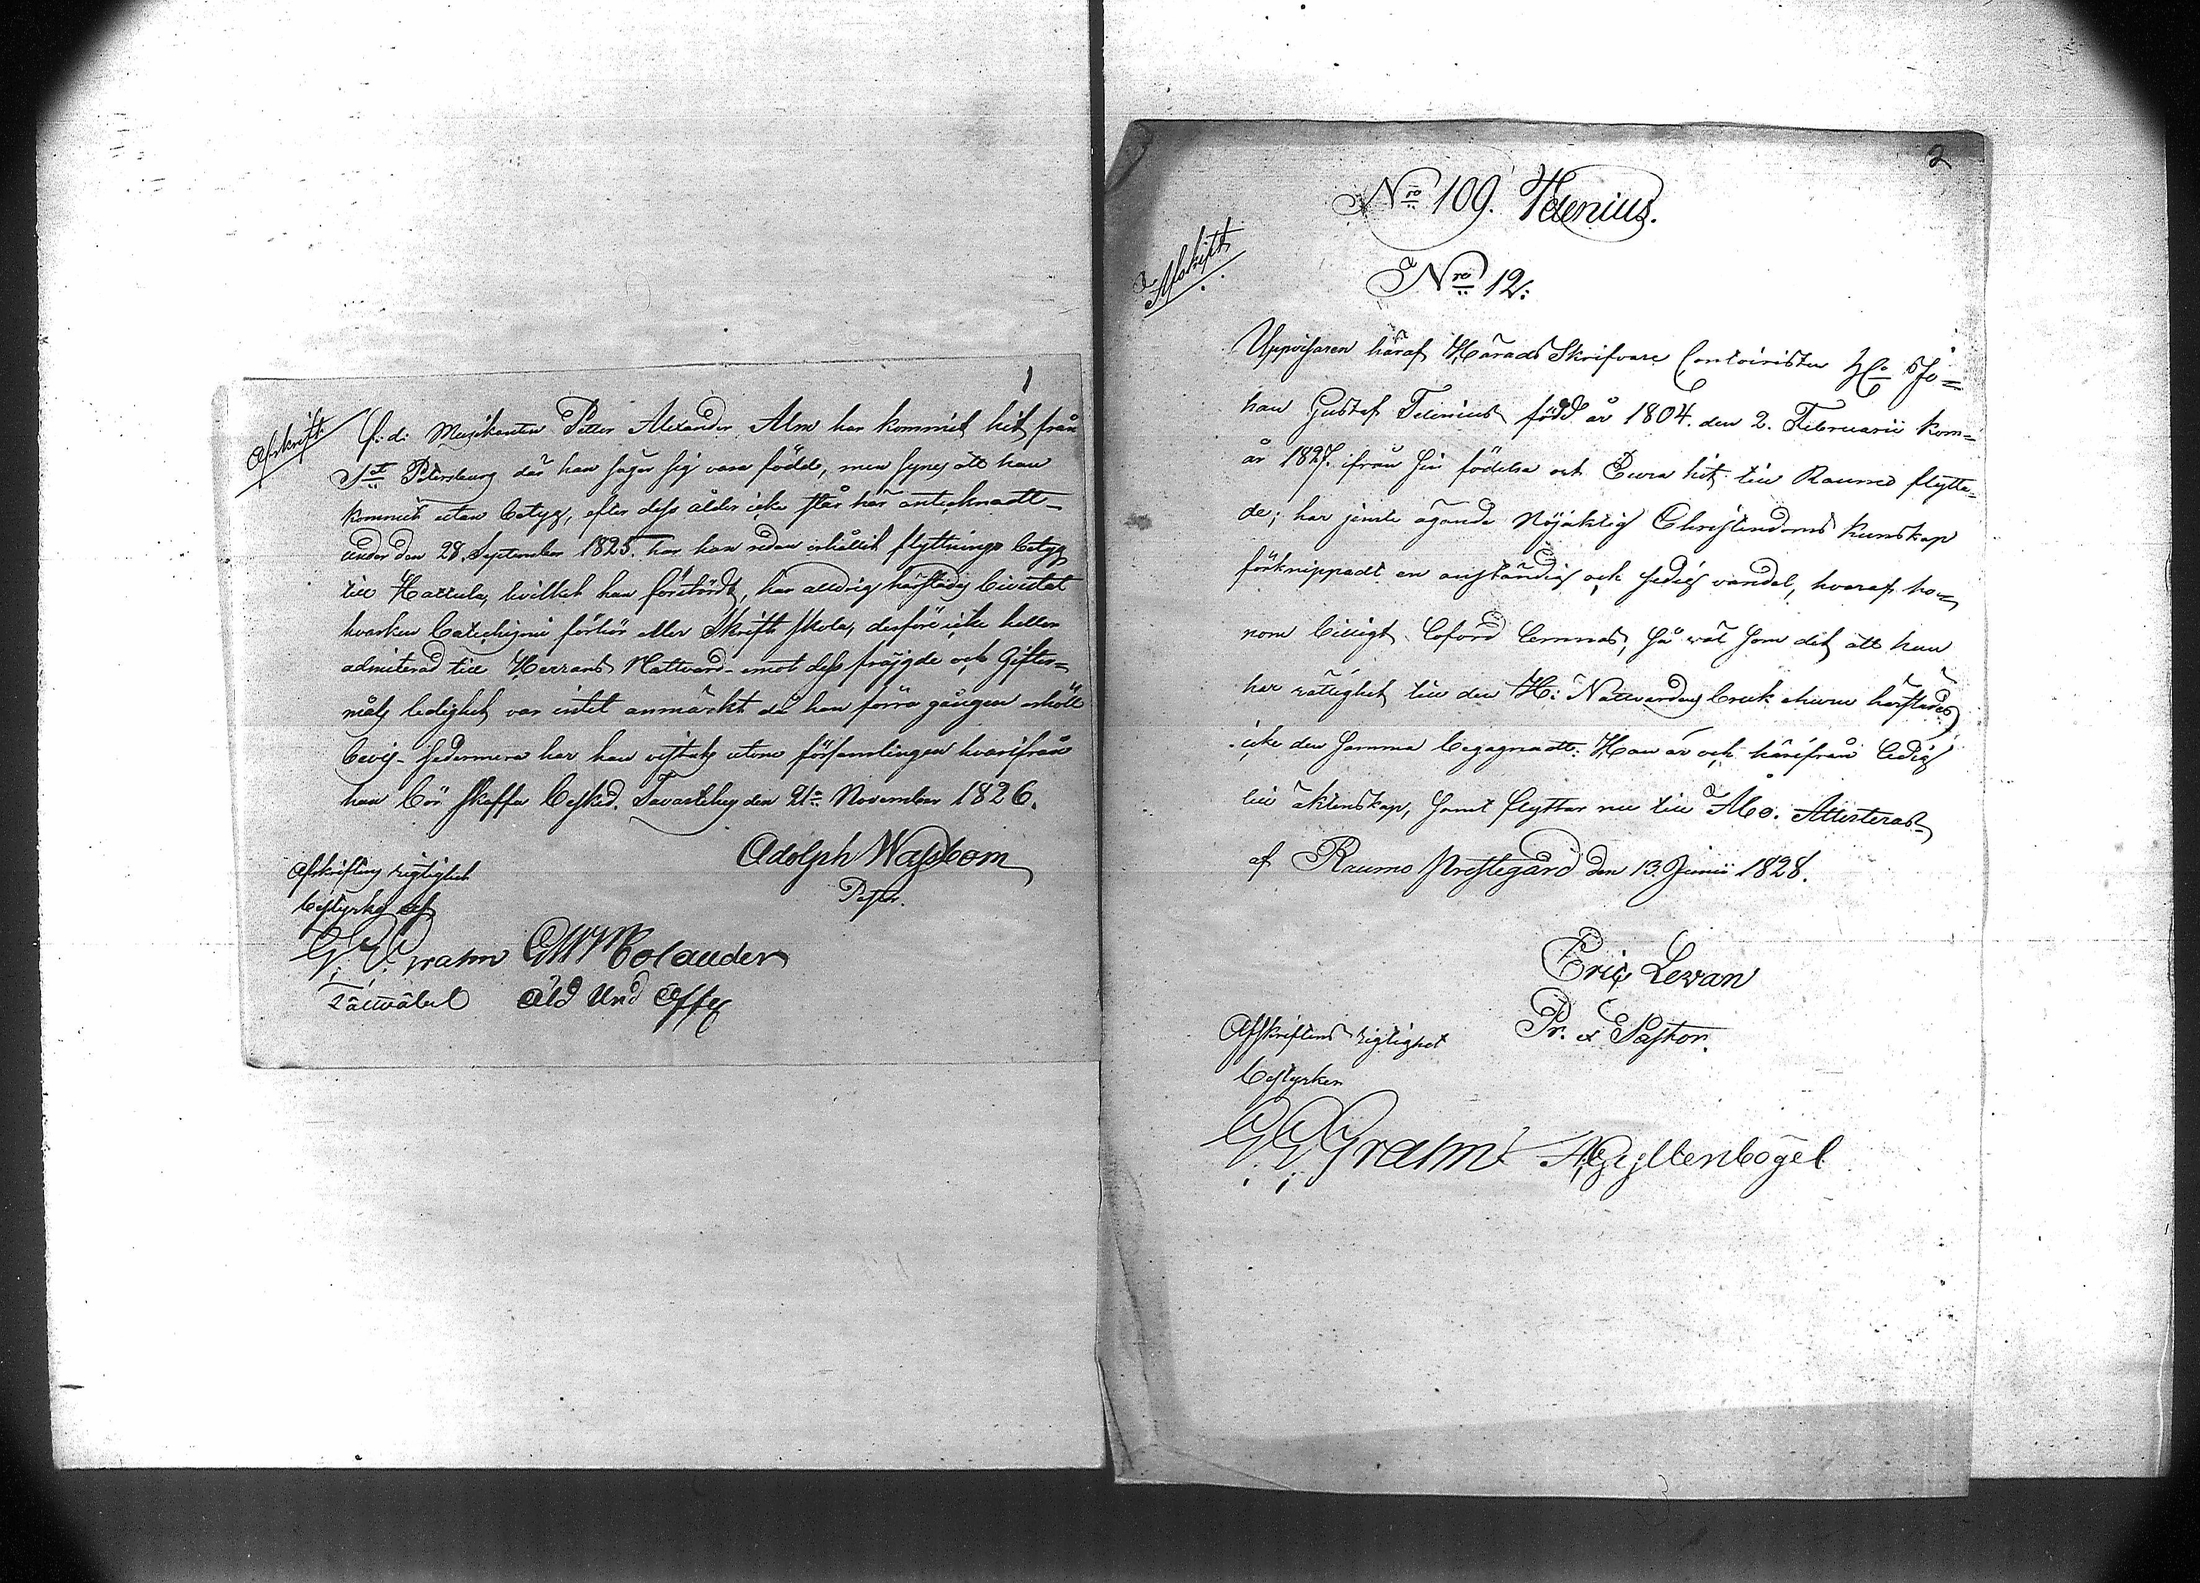 1
Afskrift
F: d: Musikanten Petter Alexander Alm har kommit hit från
S:t Petersburg där han säger sig vara född, men synes att han
kommit utan betyg, efter dess ålder icke står här anteknadt_
under den 28 September 1825. har han redan erhållit flyttnings betyg
till Hattula, hvilket han förstördt, har aldrig härstädes bivistat
hvarken Catechismi förhör eller Skrift skola, derföre icke heller
admiterad till Herrans Nattvard_ emot dess fräjgde och Gifter=
måls ledighet var intet anmärkt då han förra gången erhölt
bevis_ sedermera har han vistats utom församlingen hvarifrån
han bör skaffa besked. Tavastehus den 21:a November 1826.
Adolph Wassbom
Pastor.
Afskriftens rigtighet
bestyrkes af
G. G. Grahm CM Molander
Tälttväbel Äld Und Offic
2
N:ro 109. Idenius.
Afskrift
N:ro 12:
Uppvisaren häraf Härads Skrifvare Contoiristen H:r Jo=
han Gustaf Idenius född år 1804. den 2. Februarii kom=
år 1827. ifrån sin födelse ort Eura hit till Raumo flytta=
de; har jemte ägande Nöjaktig Christendoms kunskap
förknippadt en anständig och sedig vandel, hvaraf ho=
nom billigt beförd lemnas, så väl som det att han
har rättighet till den H: Nattvardens bruk ehuru härstädes
icke den samma begagnadt. Han är och härifrån ledig
till äktenskap, samt flyttar nu till Åbo. Attesteras_
af Raumo Prestegård den 13. Junii 1828.
Eric Levan
Pr. o Pastor.
Afskriftens rigtighet
bestyrker
G. G. Grahm A Gyllenbögel